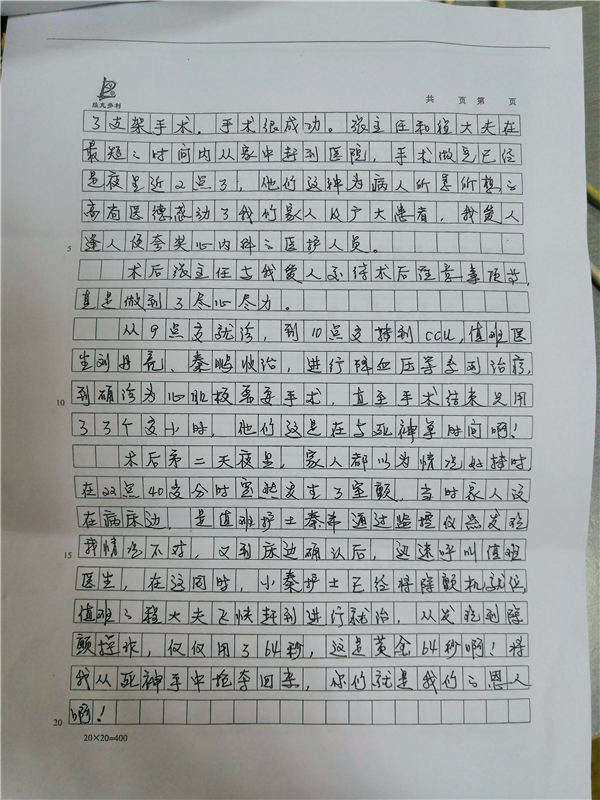 维克多利
共 页 第 页
了支架手术，手术很成功。张主任和程大夫在
最短之时间内从家中赶到医院，手术做完已经
是夜里近2点了，他们这种为病人所急所想之
高尚医德感动了我们家人及广大患者，我爱人
逢人便夸奖心内科之医护人员。
5
术后张主任与我爱人交待术后注意事项等，
真是做到了尽心尽力。
从9点多就诊，到10点多转到CCU，值班医
生刘丹亮、秦鹏收治，进行降血压等系列治疗，
到确诊为心肌梗需要手术，直至手术结束只用
10
了3个多小时，他们这是在与死神争时间啊！
术后第二天夜里，家人都以为情况好转时，
在22点40多分时突然发生了室颤，当时家人没
在病床边，是值班护士秦弟通过监控仪点发现
我情况不对，又到床边确认后，迅速呼叫值班
15
医生，在这同时，小秦护士已经将除颤机就位，
值班之程大夫飞快赶到进行就治，从发现到除
颤操作，仅仅用了64秒，这是黄金64秒啊！将
我从死神手中抢夺回来，你们就是我们之恩人
啊！
20
20×20=400